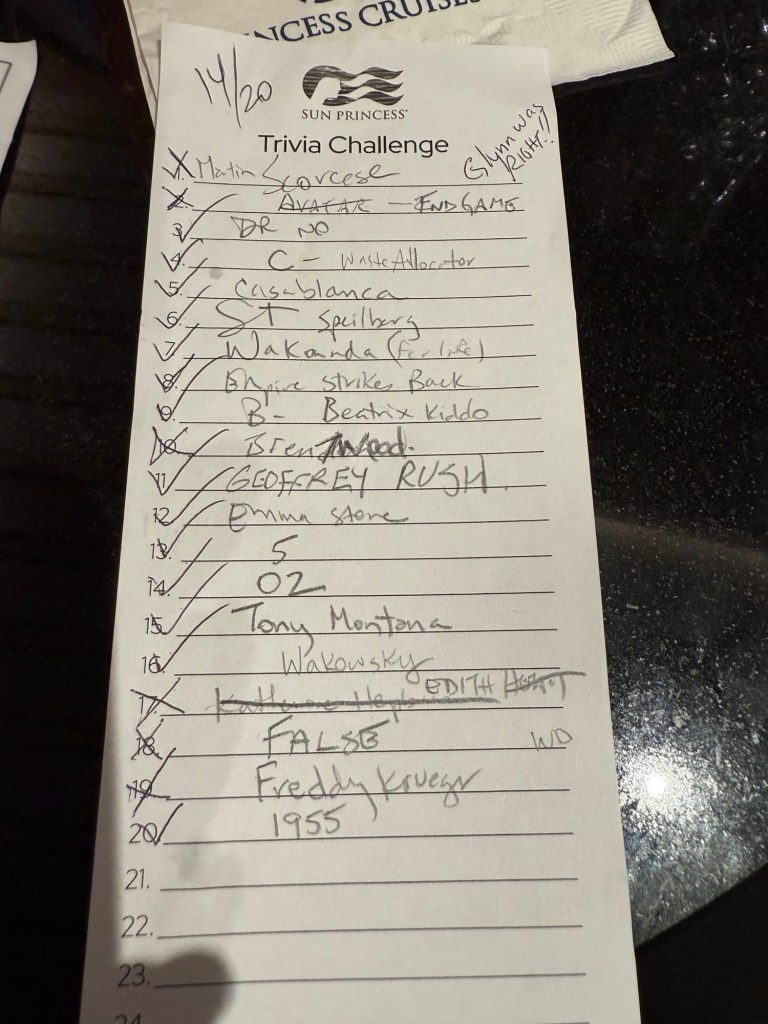 NCESS CRUISES
14/20
SUN PRINCESS®
Trivia Challenge
Glynn was RIGHT!!
1. Matin Scorcese
2. AVATAR - ENDGAME
3. DR NO
4. C - Waste Allocator
5. Casablanca
6. ST Speilberg
7. Wakanda (for life)
8. Empire Strikes Back
9. B- Beatrix Kiddo
10. Brentwood.
11. GEOFFREY RUSH.
12. Emma Stone
13. 5
14. OZ
15. Tony Montana
16. Wakowsky
17. Katherine Hepburn EDITH HEAD
18. FALSE WD
19. Freddy Kruegr
20. 1955
21.
22.
23.
24.